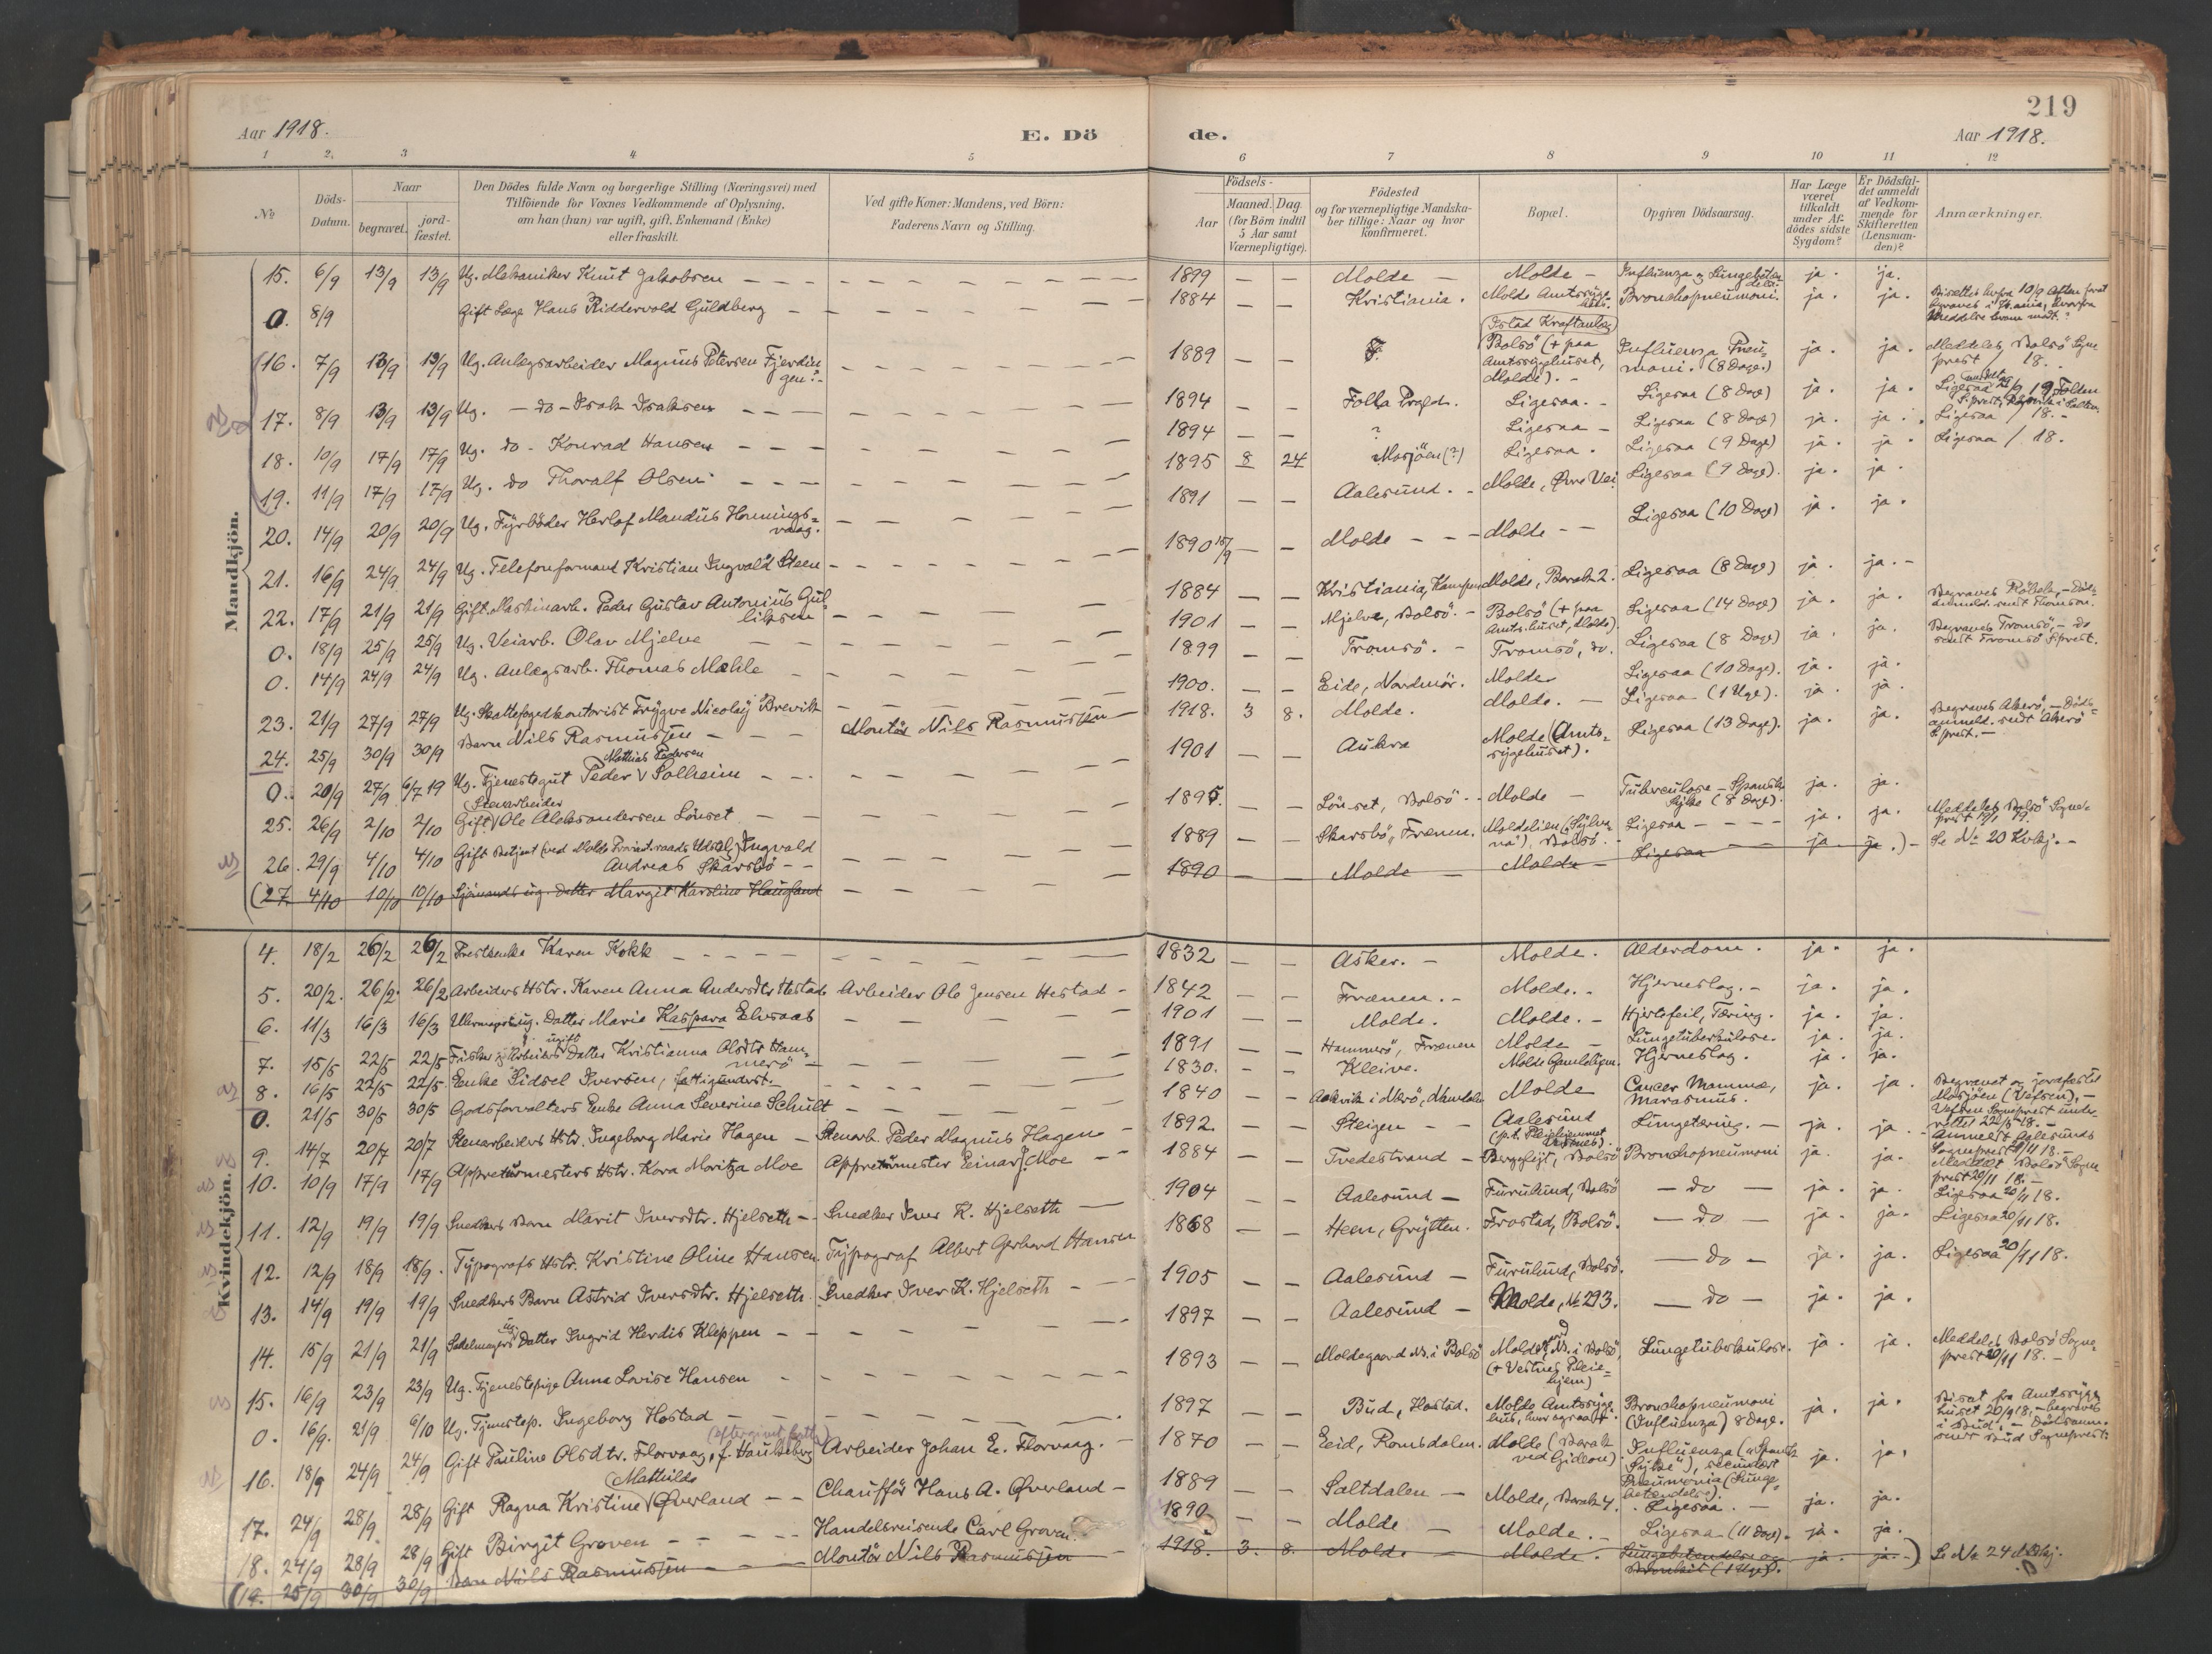 219
Aar 1918.
E. Dö
de.
Aar 1918.
1 2. 3 4 5 6 7 8 9 10 11 12
№
Döds-Datum.
Naar
begravet.
jord-fæstet.
Den Dödes fulde Navn og borgerlige Stilling (Næringsvei) med
Tilföiende for Voxnes Vedkommende af Oplysning,
om han (hun) var ugift, gift, Enkemand (Enke)
eller fraskilt.
Ved gifte Koner: Mandens, ved Börn:
Faderens Navn og Stilling.
Födsels-
Aar
Maaned.
Dag.
(for Börn indtil
5 Aar samt
Værnepligtige).
Födested
og for værnepligtige Mandska-
ber tillige: Naar og hvor
konfirmeret.
Bopæl.
Opgiven Dödsaarsag.
Har Læge
været
tilkaldt
under Af-
dödes sidste
Sygdom?
Er Dödsfal-
det anmeldt
af Vedkom-
mende for
Skifteretten
(Lensman-
den)?
Anmærkninger.
Mandkjön.
15. 6/9 13/9 13/9 Ug. Mekaniker Knut Jakobsen 1899 Molde Molde Influenza og ja. ja.
0. 8/9 Gift Læge Hans Riddervold Guldberg 1884 Kristiania. Molde Amtssyge- Bronchopneumoni. ja. ja.
16. 7/9 13/9 13/9 Ug. Anlægsarbeider Magnus Petersen Fjerdin
gen? 1889 Istad Kraftanlæg
Bolsö (+ paa
Amtssygehuset,
Molde). Influenza Pneu-
moni. (8 Dage.) ja. ja. Meddelt Bolsö Sogne
prest / 18.
17. 8/9 13/9 13/9 Ug. do Isak Isaksen 1894 Ligesaa. Ligesaa (8 Dage) ja. ja.
18. 10/9 17/9 17/9 Ug. do Konrad Hansen 1894 ? Ligesaa Ligesaa (8 Dage) ja. ja. Ligesaa / 18.
19. 11/9 17/9 17/9 Ug. do Thoralf Olsen 1895 8 24 Mosjöen (?) Ligesaa. Ligesaa (9 Dage) ja. ja. Ligesaa / 18.
20. 14/9 20/9 20/9 Ug. Fyrböder Herlof Mandius Honnings-
vaag. 1891 Aalesund. Molde, Øvre Vei Ligesaa (9 Dage). ja. ja.
21. 16/9 24/9 24/9 Ug. Telefonformand Kristian Ingvald Steen 1890 15/9 Molde Molde Ligesaa (10 Dage) ja. ja.
22. 17/9 21/9 21/9 Gift. Maskinarb. Peder Gustav Antonius Gul-
liksen 1884 Kristiania, Kampen Molde, Barak 2. Ligesaa (8 Dage) ja. ja.
0. 18/9 25/9 25/9 Ug. Veiarb. Olav Mjelve 1901 Mjelve, Bolsö. Bolsö (+ paa
Amts.huset, Molde). Ligesaa (14 Dage) ja. ja. Begraves Röbekk,
0. 14/9 24/9 24/9 Ug. Anlægsarb. Thomas Mæhle 1899 Tromsö. Tromsö, do. Ligesaa (8 Dage) ja. ja. Begraves Tromsö, do
sendt Tromsö S.prest.
23. 21/9 27/9 27/9 Ug. Skattefogedkontorist Trygve Nicolay Brevik 1900. Eide, Nordmör. Molde Ligesaa (10 Dage). ja. ja.
24. 25/9 30/9 30/9 Barn Nils Rasmussen Montör Nils Rasmussen 1918. 3 8. Molde. Molde. Ligesaa (1 Uge). ja. ja.
0. 20/9 27/9 6/7 19 Ug. Tjenestegut Peder Mathias Pedersen Solheim 1901 Aukra Molde (Amts-
sygehuset). Ligesaa (13 Dage). ja. ja. Begraves Akerö, Döds-
anmeld. sendt Akerö
S.prest.
25. 26/9 2/10 2/10 Gift Stenarbeider Ole Aleksandersen Lönset 1895. Lönset, Bolsö Molde Tuberculose Spanske
Syke (8 Dage). ja. ja.
26. 29/9 4/10 4/10 Gift Betjent (ved Molde Provianteraads Udsalg) Ingvald
Andreas Skarsbö 1889 Skarsbö, Frænen. Moldelien , Bolsö. Ligesaa ja. ja. Meddelt Bolsö Sogne-
prest
(27. 4/10 10/10 10/10 Sjömands ug. Datter Margit Karoline Haugland 1890 Molde Molde Ligesaa ja ja.) Se № 20 Kvkj.
Kvindekjön.
4. 18/2 26/2 26/2 Prestenke Karen Kokk 1832 Asker. Molde. Alderdom. ja. ja.
5. 20/2. 26/2. 26/2 Arbeiders Hstr. Karen Anna Andersdtr Hestad Arbeider Ole Jensen Hestad 1842 Frænen. Molde. Hjerneslag. ja. ja.
6. 11/3 16/3 16/3 Uhrmagers ug. Datter Marie Kaspara Elvsaas 1901 Molde. Molde. Hjertefeil, Tæring. ja. ja.
7. 15/5 22/5 22/5 Fisker og Arbeiders ugift Datter Kristianna Olsdtr Ham-
merö 1891 Hammerö, Frænen Molde Lungetuberkulose. ja. ja.
8. 16/5 22/5 22/5 Enke Sidsel Iversen, fattigunderst. 1830. Kleive. Molde Gamlehjem. Hjerneslag. ja. ja.
0. 21/5 30/5 30/5 Godsforvalters Enke Anna Severine Schult 1840 Molde Cancer Mammæ,
Marasmus. ja. ja. Begravet og jordfæstet
Mosjöen (Vefsen).
Vefsen Sogneprest under-
rettet 22/5 18.
9. 14/7 20/7 20/7 Stenarbeiders Hstr. Ingeborg Marie Hagen Stenarb. Peder Magnus Hagen 1892. Steigen Aalesund
(p.t. Pleiehjemmet
Vestnes). Lungetæring. ja. ja. Anmeldt Aalesunds
Sogneprest 11 18.
10. 10/9 17/9 17/9 Appreturmesters Hstr. Kora Moritza Moe Appreturmester Einar J. Moe 1884 Tvedestrand Bergsligt, Bolsö Bronchopneumoni ja. ja. Meddelt Bolsö Sogne
prest 20/11 18.
11. 12/9 19/9 19/9 Snedkers Barn Marit Iversdtr. Hjelseth Snedker Iver K. Hjelseth 1904 Aalesund Furulund, Bolsö do ja. ja. Ligesaa 20/11 18.
12. 12/9 18/9 18/9. Typografs Hstr. Kristine Oline Hansen. Typograf Albert Gerhard Hansen 1868 Heen, Grytten. Frostad, Bolsö. do ja. ja. Ligesaa 20/11 18.
13. 14/9 19/9 19/9 Snedkers Barn Astrid Iversdtr. Hjelseth. Snedker Iver K. Hjelseth 1905 Aalesund Furulund, Bolsö. do ja. ja. Ligesaa 20/11 18.
14. 15/9 21/9 21/9 Sadelmagers ug. Datter Ingrid Herdis Kleppen 1897 Aalesund Molde, № 293. do ja. ja.
15. 16/9 23/9 23/9 Ug. Tjenestepige Anna Lovise Hansen 1893 Moldegaard Ns. i Bolsö Moldegaard Ns. i Bolsö,
(+ Vestnes Pleie-
hjem) Lungetuberkulose. ja. ja. Meddelt Bolsö Sogne-
prest 20/11 18.
0. 16/9. 21/9 6/10 Ug. Tjenestep. Ingeborg Hostad 1897 Bud, Hostad. Molde Amtssyge-
hus, Bronchopneumoni
(Influenza) 8 Dage. ja. ja. Bisat fra Amtssyge
huset 20/9 18, begraves
i Bud.
sendt Bud Sogneprest.
16. 18/9 24/9 24/9 Gift Pauline Olsdtr. Florvaag, f. Haukeberg Arbeider Johan E. Florvaag. 1870 Eid, Romsdalen. Molde (Barak
ved Gideon). Influenza („Spansk
Syke"), secundært
Pneumonia (Lunge-
betændelse). ja. ja.
17. 24/9 28/9. 28/9 Gift Ragna Kristine Mathilde Øverland Chauffför Hans A. Øverland 1889 Saltdalen Molde, Barak 4. Ligesaa. ja. ja.
18. 24/9 28/9 28/9 Gift Birgit Groven Handelsreisende Carl Groven 1890 Molde Molde. Ligesaa (11 Dage). ja. ja.
(19. 25/9 30/9 30/9 Barn Nils Rasmussen Montör Nils Rasmussen 1918. 3. 8. Molde Molde. Lungebetændelse og
Bronkit (1 Uge). ja. ja.) Se № 24 Mdkj.